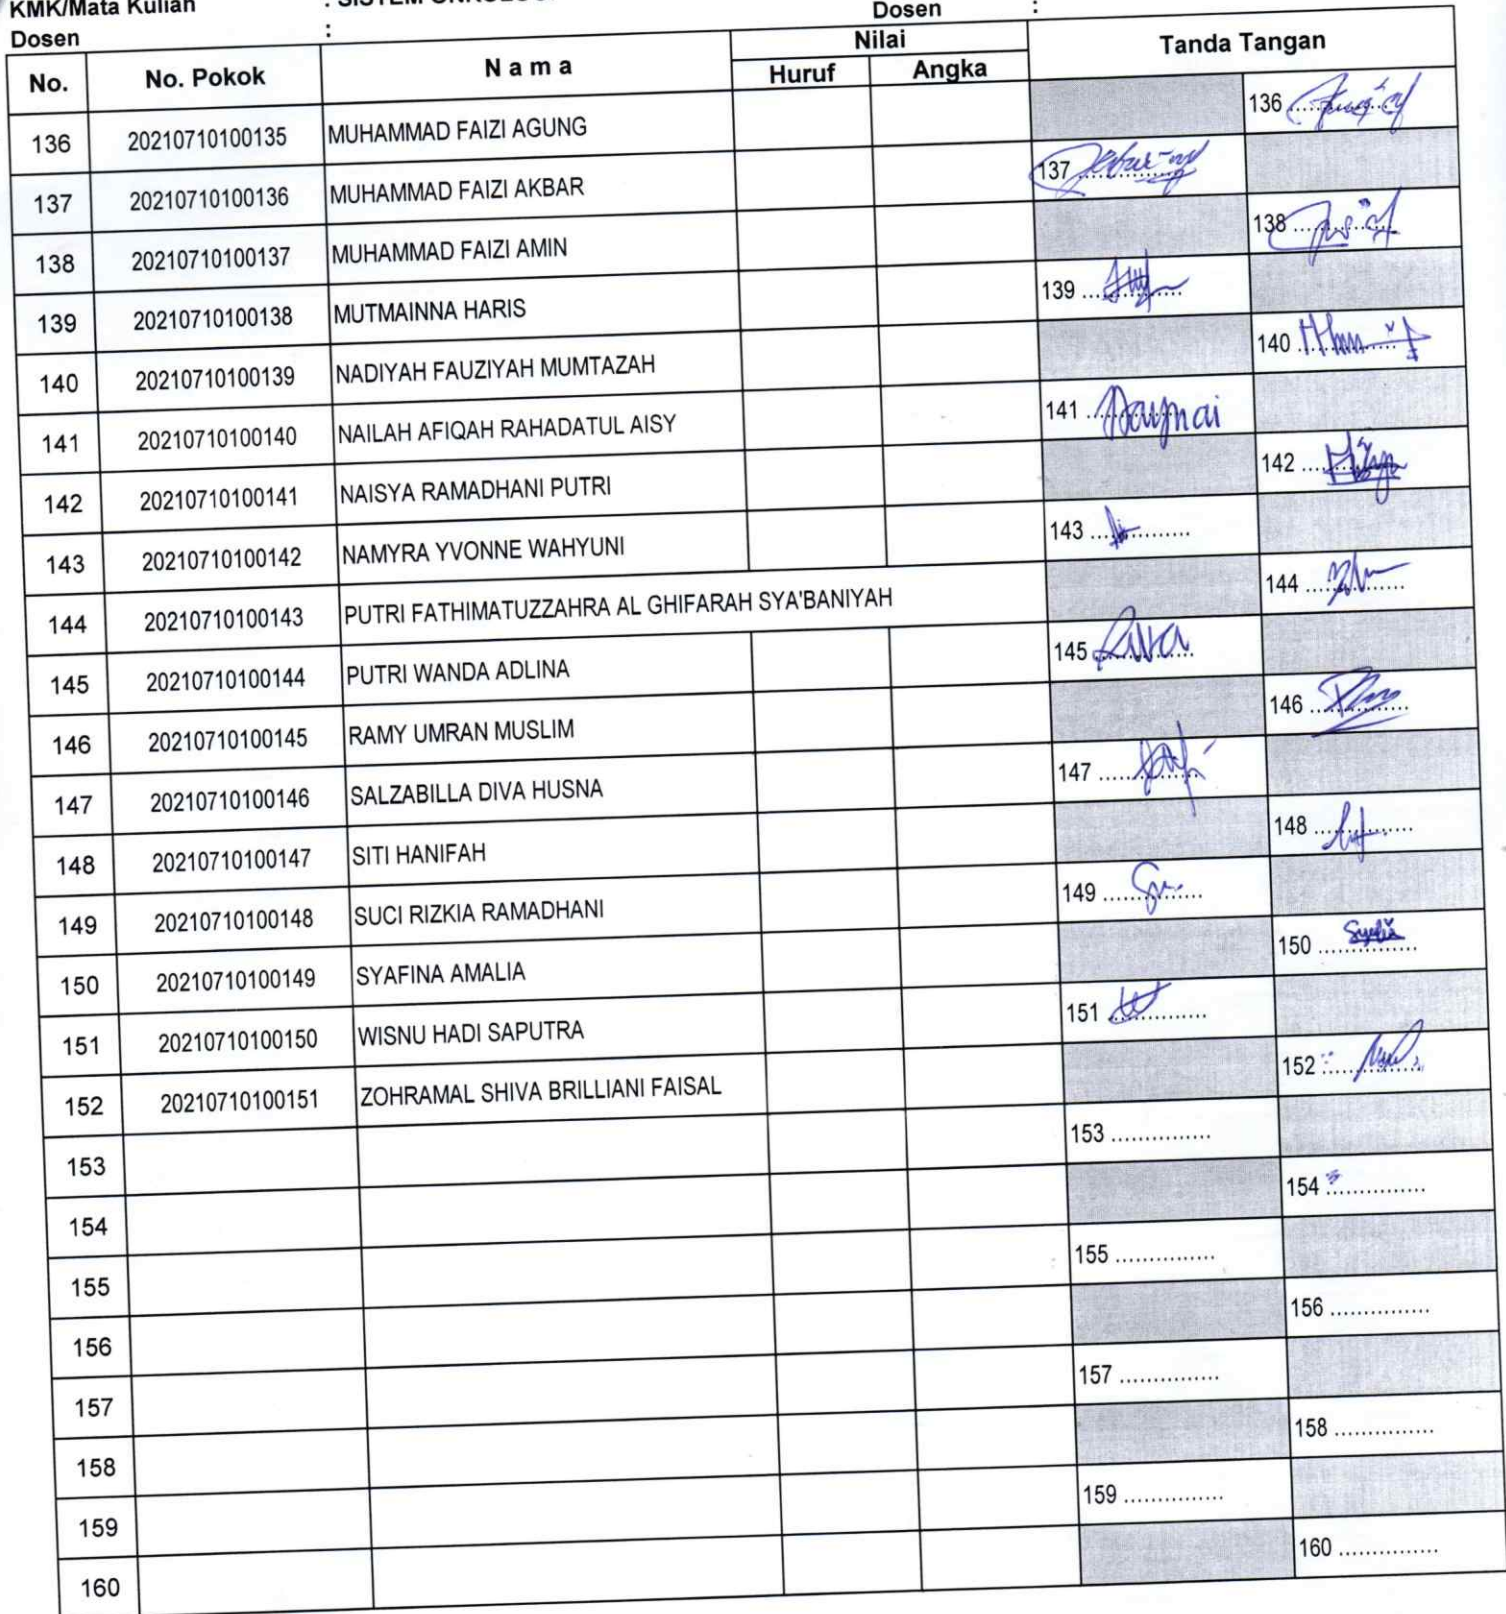 KMK/Mata Kuliah : SISTEM
Dosen : Dosen :
No. No. Pokok N a m a Nilai Tanda Tangan
Huruf Angka
136 20210710100135 MUHAMMAD FAIZI AGUNG 136
137 20210710100136 MUHAMMAD FAIZI AKBAR 137
138 20210710100137 MUHAMMAD FAIZI AMIN 138
139 20210710100138 MUTMAINNA HARIS 139
140 20210710100139 NADIYAH FAUZIYAH MUMTAZAH 140
141 20210710100140 NAILAH AFIQAH RAHADATUL AISY 141
142 20210710100141 NAISYA RAMADHANI PUTRI 142
143 20210710100142 NAMYRA YVONNE WAHYUNI 143
144 20210710100143 PUTRI FATHIMATUZZAHRA AL GHIFARAH SYA'BANIYAH 144
145 20210710100144 PUTRI WANDA ADLINA 145
146 20210710100145 RAMY UMRAN MUSLIM 146
147 20210710100146 SALZABILLA DIVA HUSNA 147
148 20210710100147 SITI HANIFAH 148
149 20210710100148 SUCI RIZKIA RAMADHANI 149
150 20210710100149 SYAFINA AMALIA 150
151 20210710100150 WISNU HADI SAPUTRA 151
152 20210710100151 ZOHRAMAL SHIVA BRILLIANI FAISAL 152
153 153 ...............
154 154 ...............
155 155 ...............
156 156 ...............
157 157 ...............
158 158 ...............
159 159 ...............
160 160 ...............